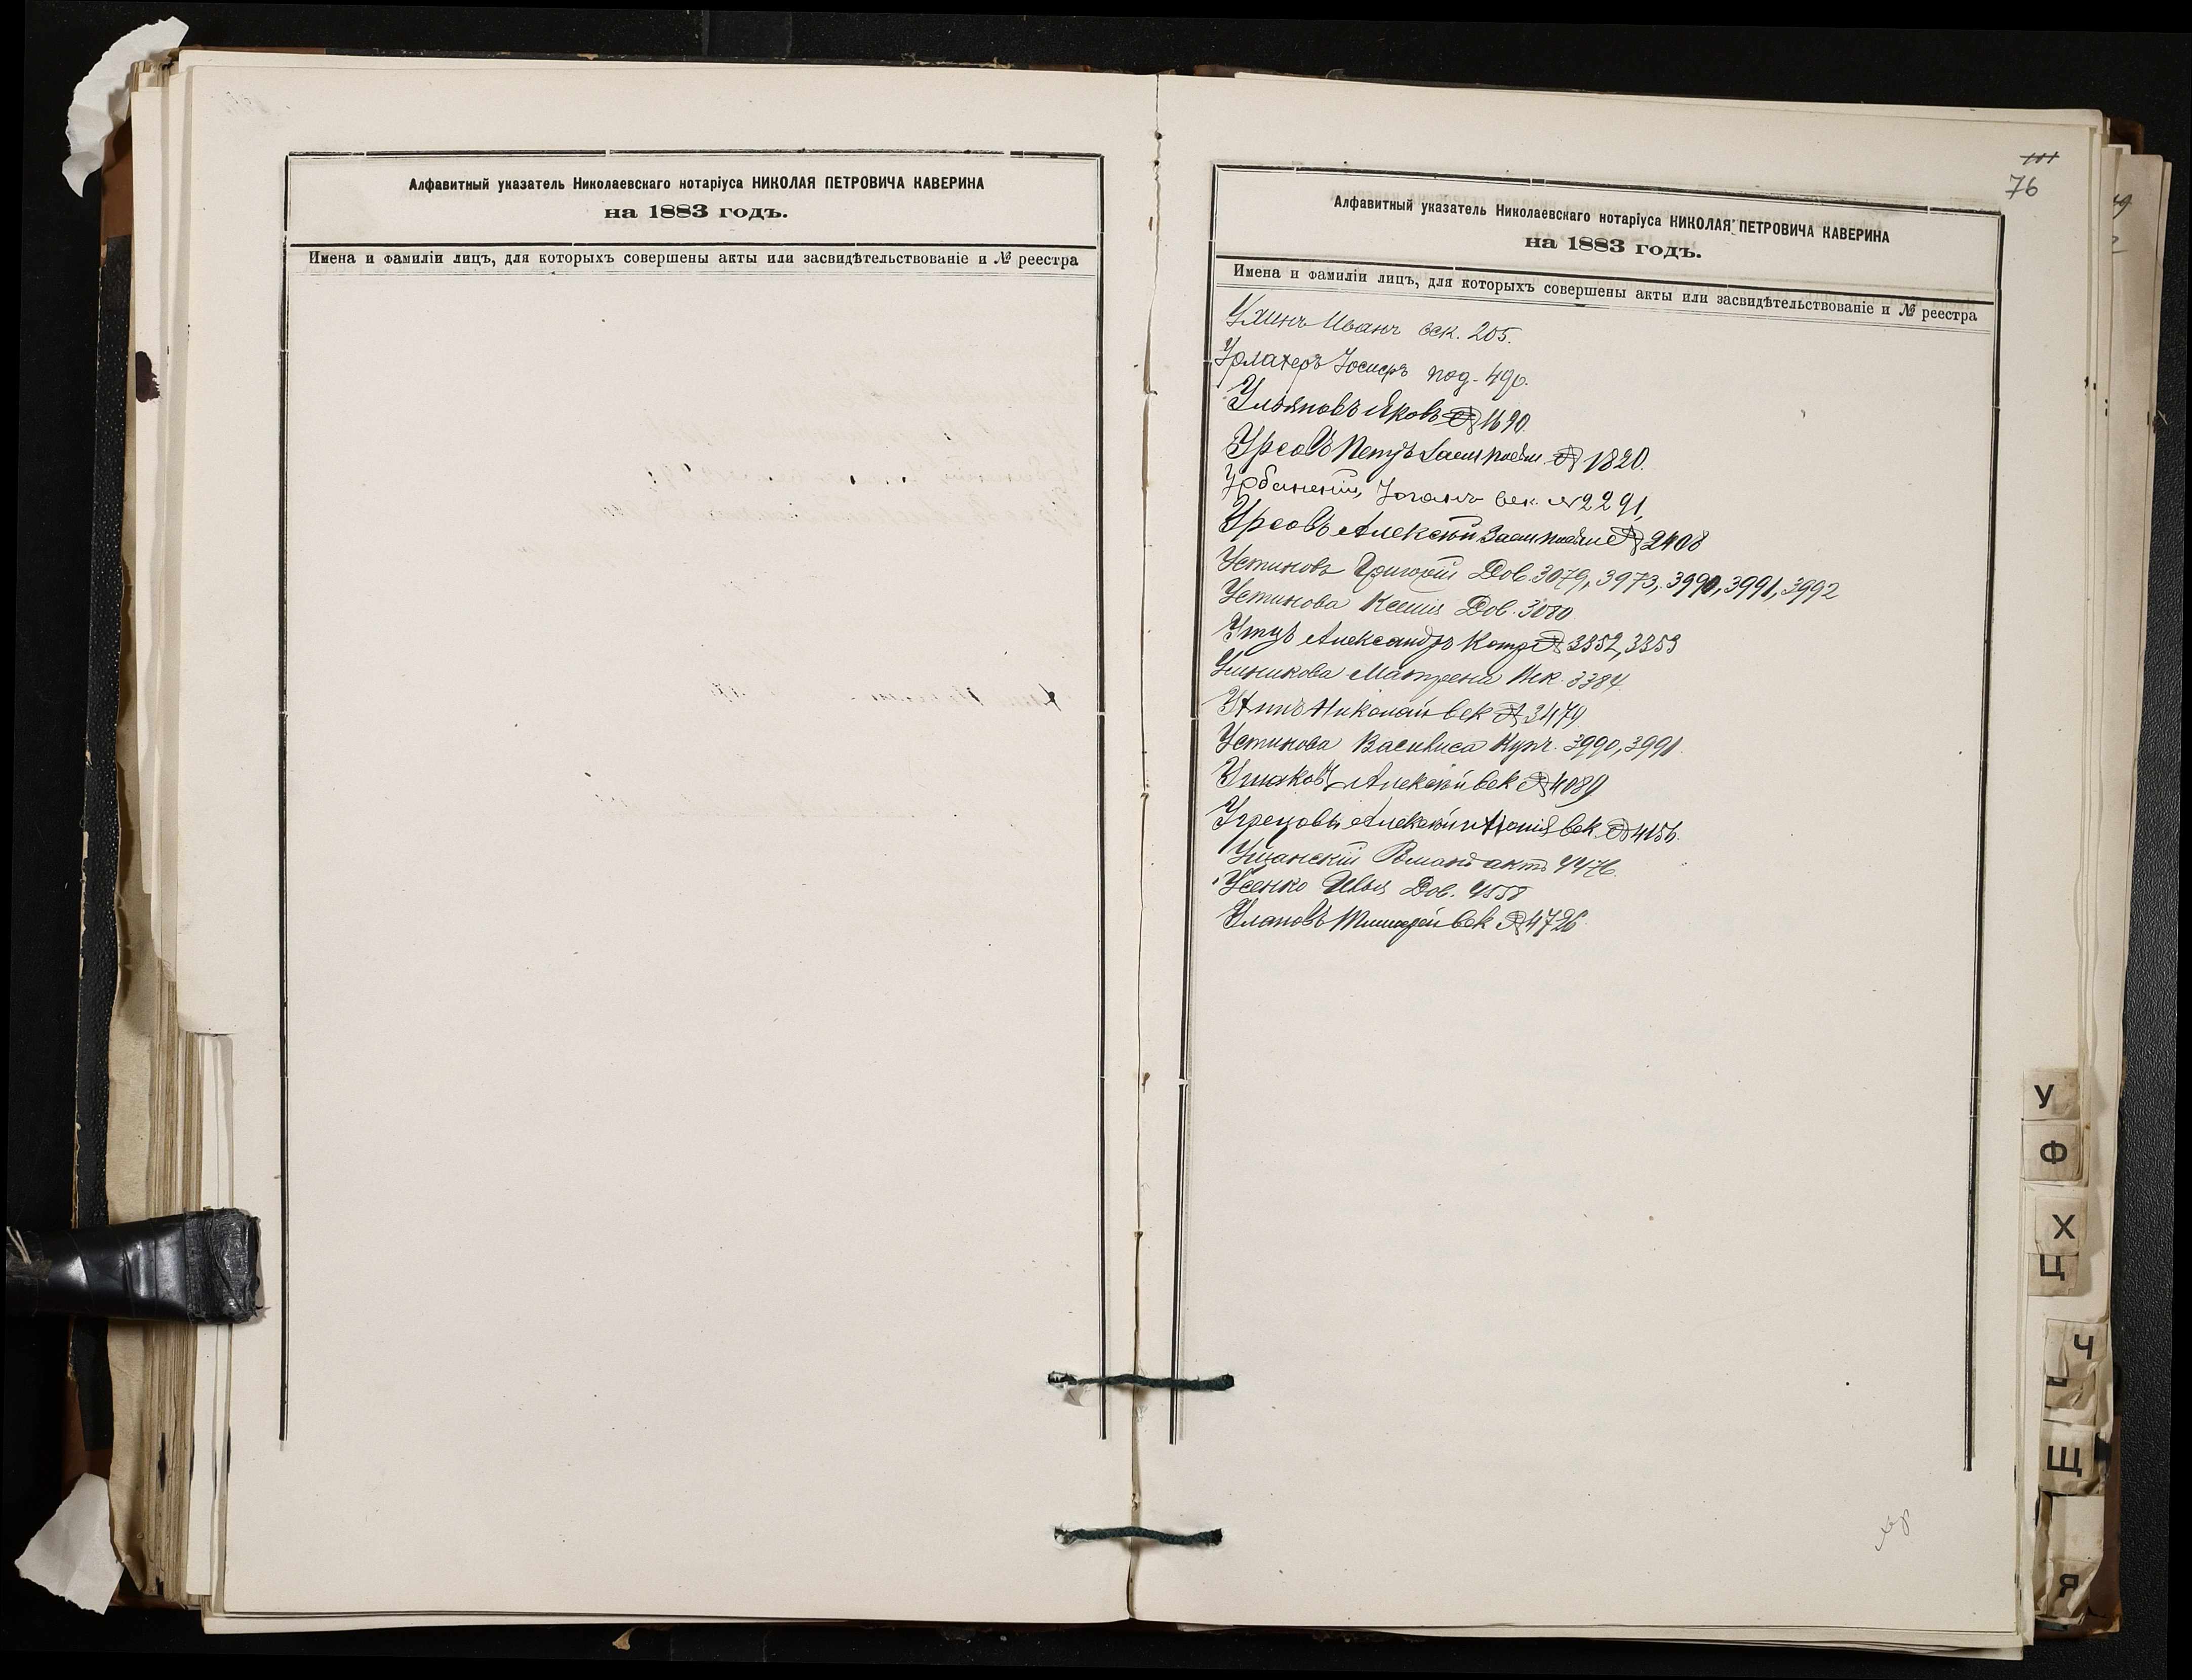 Алфавитный указатель Николаевскаго нотаріуса НИКОЛАЯ ПЕТРОВИЧА КАВЕРИНА
на 1883 годъ.
Имена и фамиліи лицъ, для которыхъ совершены акты или засвидѣтельствованіе и № реестра
111
76
Алфавитный указатель Николаевскаго нотаріуса НИКОЛАЯ ПЕТРОВИЧА КАВЕРИНА
на 1883 годъ.
Имена и фамиліи лицъ, для которыхъ совершены акты или засвидѣтельствованіе и № реестра
Иванъ век. 205.
Урлахеръ Іосифъ под. 490.
Ульяновъ Яковъ № 1690
Урсовъ Петръ № 1820.
Іоганъ век. № 2291,
Урсовъ Алексѣй № 2408
Устиновъ Григорій Дов. 3079, 3973, 3990, 3991, 3992
Устинова Ксенія Дов. 3080
Утцъ Александръ № 3352, 3353
Матрена 3384
Николай век № 3479
Устинова Василиса Купч. 3990, 3991
Ушаковъ Алексѣй век № 4089
Алексѣй и век. № 4156.
Романъ актъ 4476
Усенко Илья Дов. 4558
Улановъ век № 4726
У
Ф
Х
Ц
Ч
Щ
Я